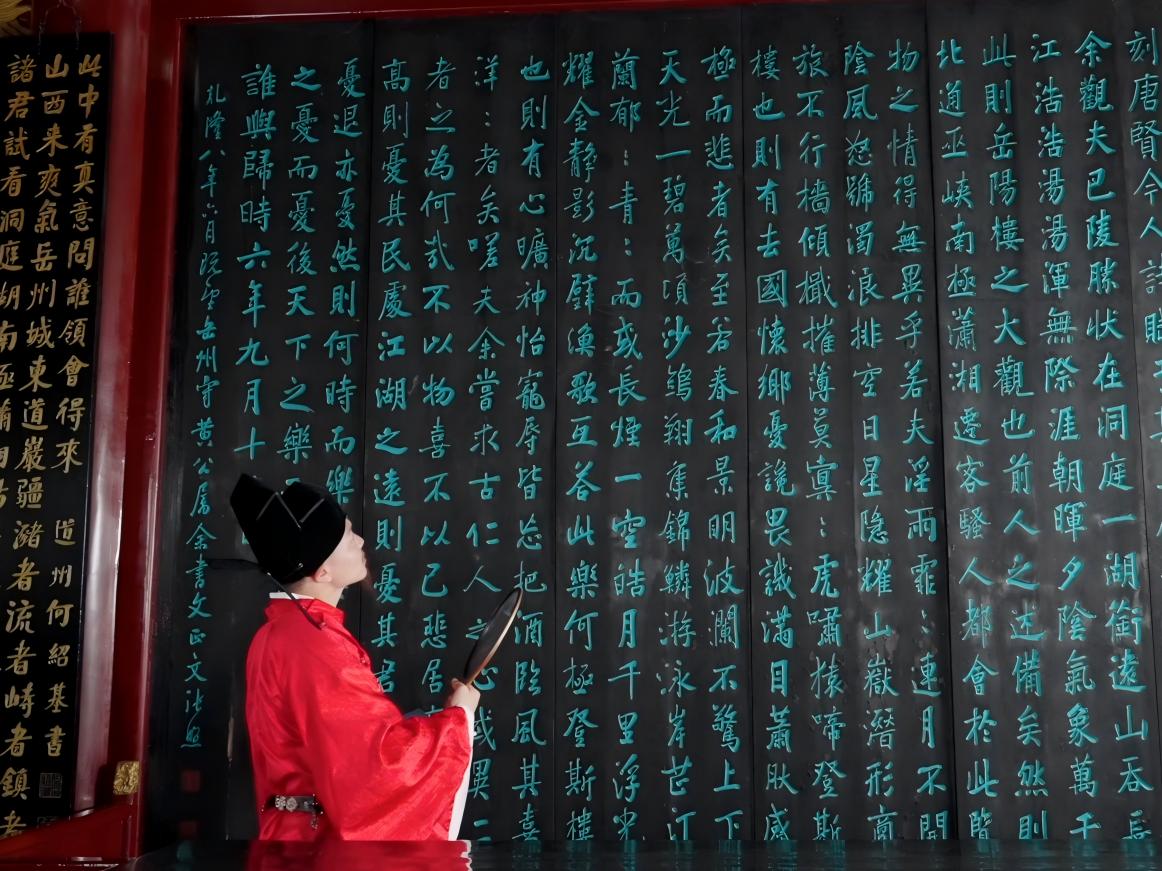 刻唐賢今人詩賦于其
余觀夫巴陵勝狀在洞庭一湖銜遠山吞長
江浩浩湯湯渾無際涯朝暉夕陰氣象萬千
此則岳陽樓之大觀也前人之述備矣然則
北通巫峽南極瀟湘遷客騷人都會於此
物之情得無異乎若夫淫雨霏:連月不開
陰風怒號濁浪排空日星隱耀山嶽潛形商
旅不行檣傾檝摧薄莫冥:虎嘯猿啼登斯
樓也則有去國懷鄉憂讒畏譏滿目蕭然感
極而悲者矣至若春和景明波瀾不驚上下
天光一碧萬頃沙鷗翔集錦鱗游泳岸芷汀
蘭郁:青:而或長煙一空皓月千里浮光
耀金靜影沉璧漁歌互答此樂何極登斯樓
也則有心曠神怡寵辱皆忘把酒臨風其喜
洋:者矣嗟夫余嘗求古仁人之心或異二
者之為何哉不以物喜不以己悲居
高則憂其民處江湖之遠則憂其君
憂退亦憂然則何時而樂
之憂而憂後天下之樂
誰與歸時六年九月十
乾隆八年六月既望岳州守黃公屬余書文正文張照
此中有真意問誰領會得來 道州何紹基書
山西来爽氣岳州城東道巖疆
瀦者流者峙者鎮者
諸君試看洞庭湖南極瀟湘